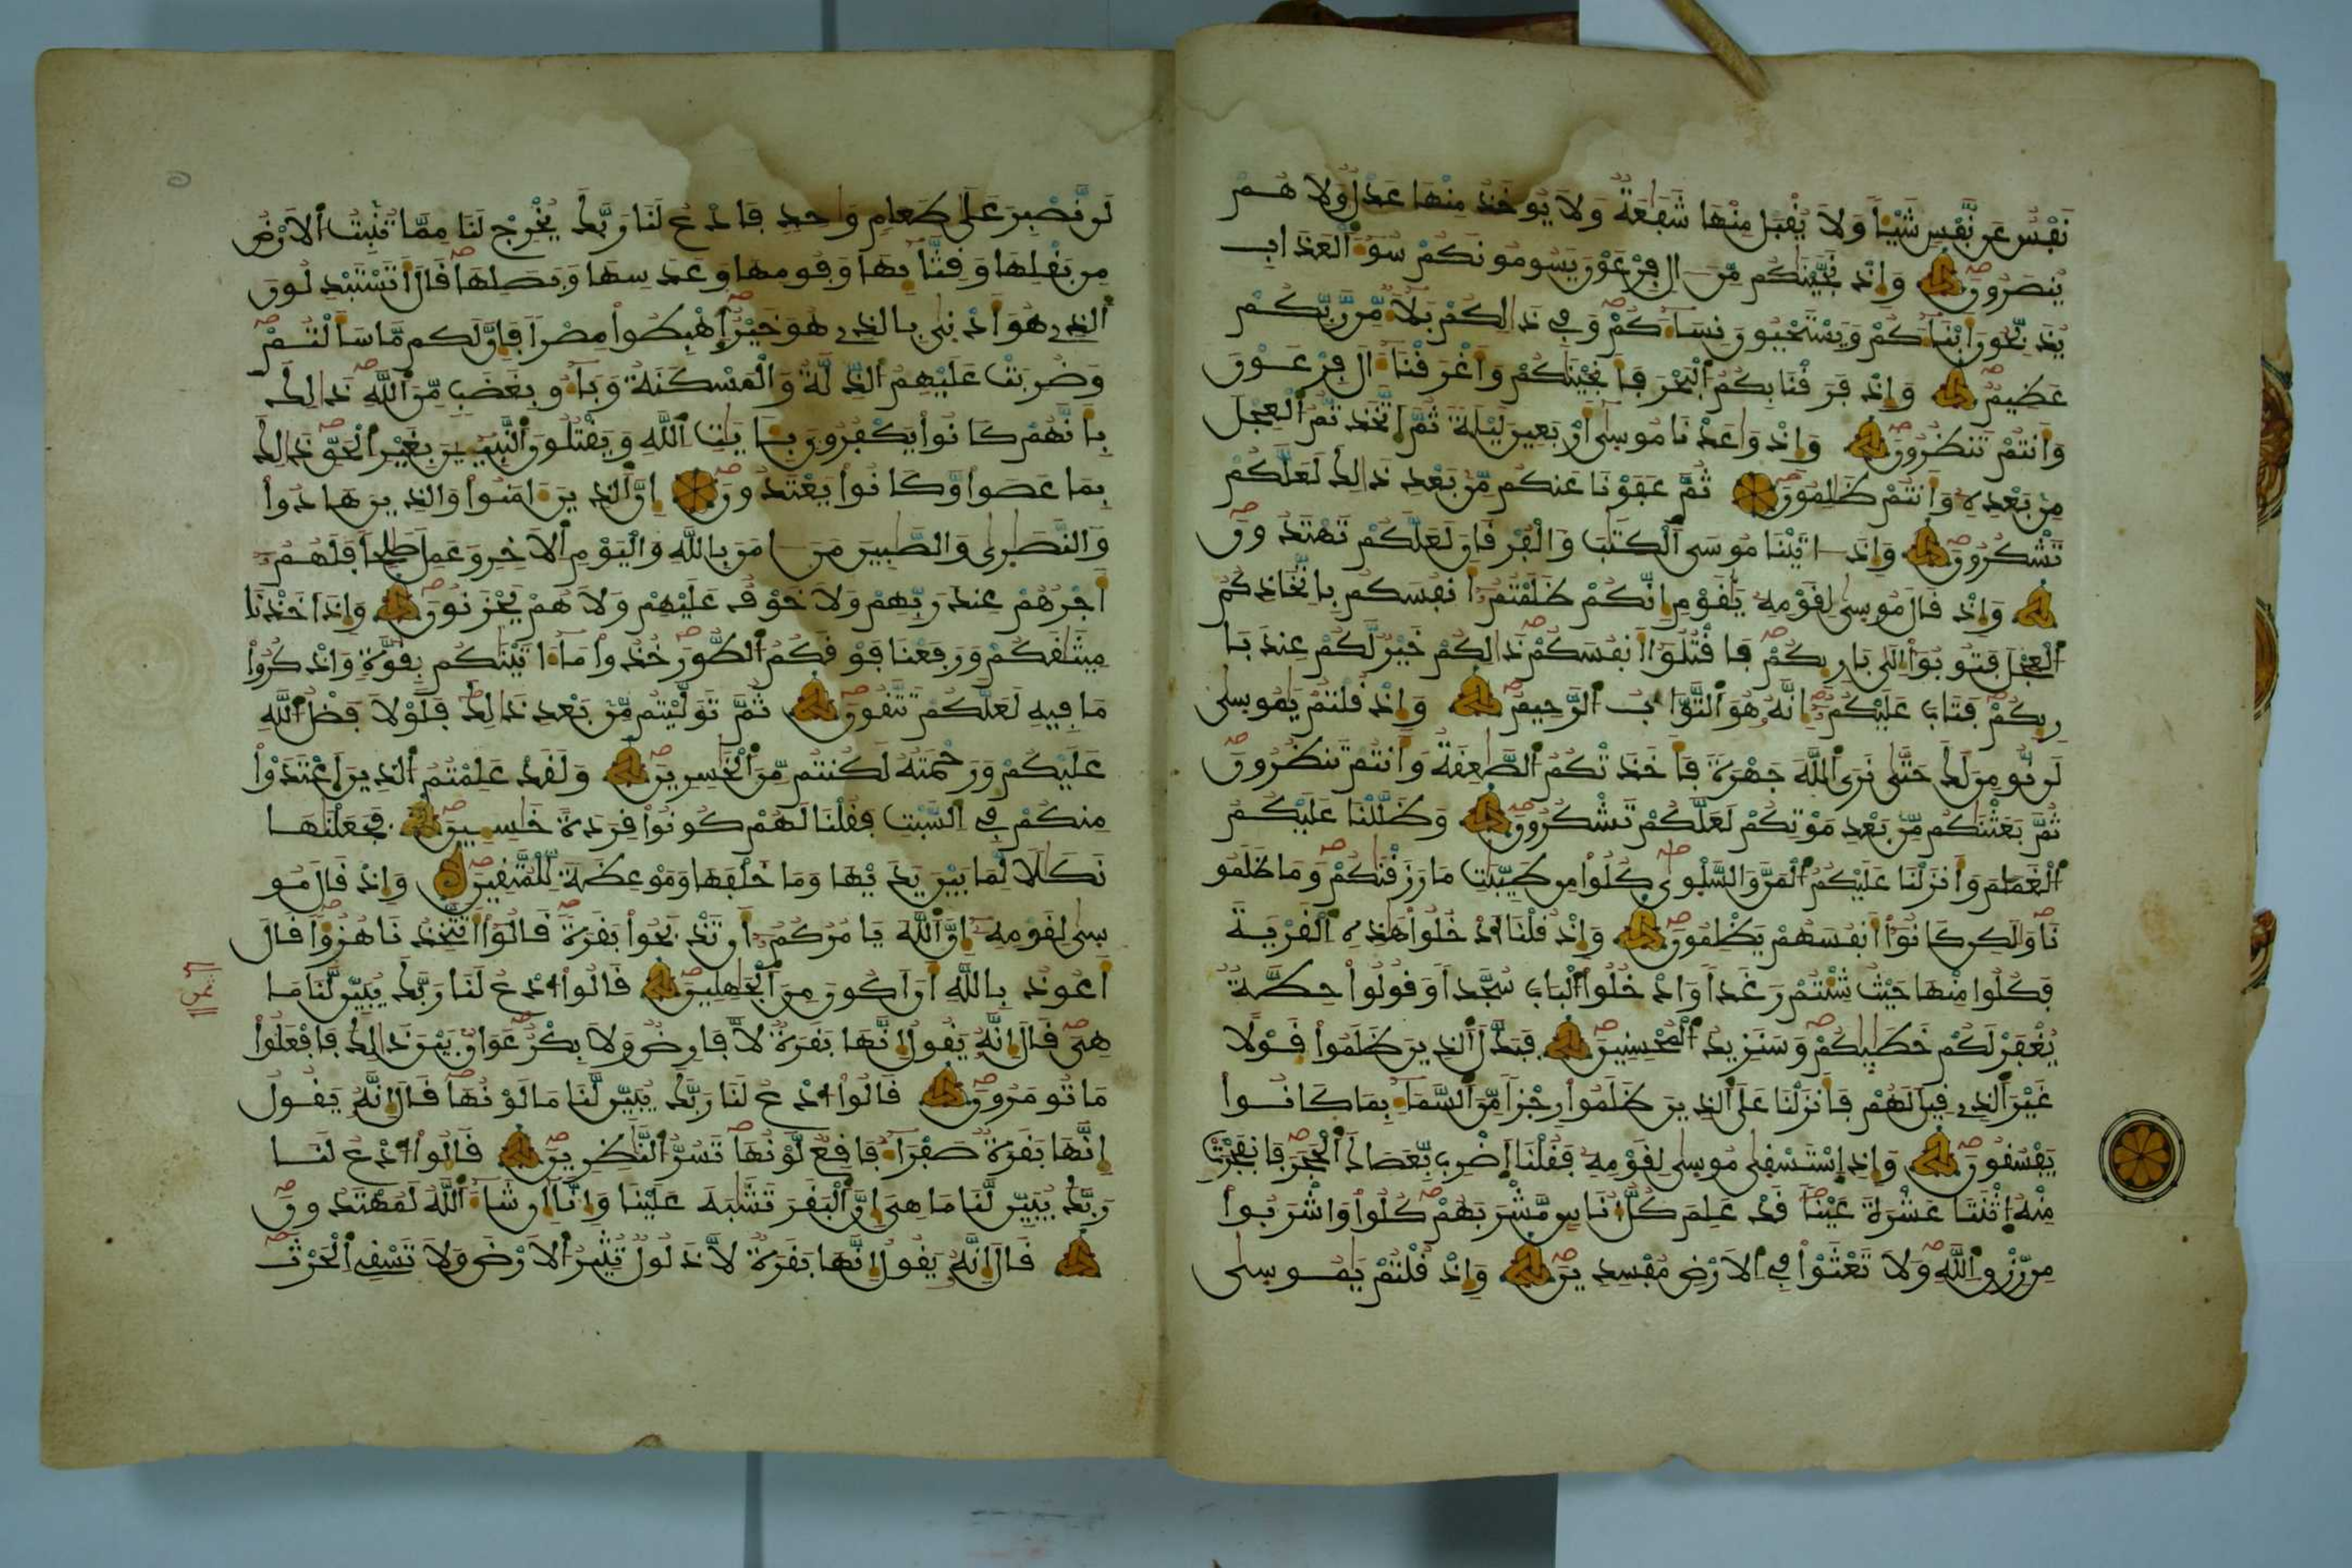 نَفْسٌ عَن نَّفْسٍ شَيْـٔاً وَلَا يُقْبَلُ مِنْهَا شَفَٰعَةٌ وَلَا يُوخَذُ مِنْهَا عَدْلٌ وَلَا هُمْ
يُنصَرُونَ وَإِذْ نَجَّيْنَٰكُم مِّنَ ـالِ فِرْعَوْنَ يَسُومُونَكُمْ سُوٓءَ ٱلْعَذَابِ
يُذَبِّحُونَ أَبْنَآءَكُمْ وَيَسْتَحْيُونَ نِسَآءَكُمْ وَفِي ذَٰلِكُم بَلَآءٌ مِّن رَّبِّكُمْ
عَظِيمٌ وَإِذْ فَرَقْنَا بِكُمُ ٱلْبَحْرَ فَأَنجَيْنَٰكُمْ وَأَغْرَقْنَآ ءَالَ فِرْعَوْنَ
وَأَنتُمْ تَنظُرُونَ وَإِذْ وَٰعَدْنَا مُوسَىٰٓ أَرْبَعِينَ لَيْلَةً ثُمَّ ٱتَّخَذتُّمُ ٱلْعِجْلَ
مِنۢ بَعْدِهِۦ وَأَنتُمْ ظَٰلِمُونَ ثُمَّ عَفَوْنَا عَنكُم مِّنۢ بَعْدِ ذَٰلِكَ لَعَلَّكُمْ
تَشْكُرُونَ وَإِذَ ـاتَيْنَا مُوسَى ٱلْكِتَٰبَ وَٱلْفُرْقَانَ لَعَلَّكُمْ تَهْتَدُونَ
وَإِذْ قَالَ مُوسَىٰ لِقَوْمِهِۦ يَٰقَوْمِ إِنَّكُمْ ظَلَمْتُمُۥٓ أَنفُسَكُم بِٱتِّخَاذِكُمُ
ٱلْعِجْلَ فَتُوبُوٓا۟ إِلَىٰ بَارِئِكُمْ فَٱقْتُلُوٓا۟ أَنفُسَكُمْ ذَٰلِكُمْ خَيْرٌ لَّكُمْ عِندَ بَا
رِئِكُمْ فَتَابَ عَلَيْكُمُۥٓ إِنَّهُۥ هُوَ ٱلتَّوَّابُ ٱلرَّحِيمُ وَإِذْ قُلْتُمْ يَٰمُوسَىٰ
لَن نُّومِنَ لَكَ حَتَّىٰ نَرَى ٱللَّهَ جَهْرَةً فَأَخَذَتْكُمُ ٱلصَّٰعِقَةُ وَأَنتُمْ تَنظُرُونَ
ثُمَّ بَعَثْنَٰكُم مِّنۢ بَعْدِ مَوْتِكُمْ لَعَلَّكُمْ تَشْكُرُونَ وَظَلَّلْنَا عَلَيْكُمُ
ٱلْغَمَٰمَ وَأَنزَلْنَا عَلَيْكُمُ ٱلْمَنَّ وَٱلسَّلْوَىٰ كُلُوا۟ مِن طَيِّبَٰتِ مَا رَزَقْنَٰكُمْ وَمَا ظَلَمُو
نَا وَلَٰكِن كَانُوٓا۟ أَنفُسَهُمْ يَظْلِمُونَ وَإِذْ قُلْنَا ٱدْخُلُوا۟ هَٰذِهِ ٱلْقَرْيَةَ
فَكُلُوا۟ مِنْهَا حَيْثُ شِئْتُمْ رَغَداً وَٱدْخُلُوا۟ ٱلْبَابَ سُجَّداً وَقُولُوا۟ حِطَّةٌ
يُغْفَرْ لَكُمْ خَطَٰيَٰكُمْ وَسَنَزِيدُ ٱلْمُحْسِنِينَ فَبَدَّلَ ٱلذِينَ ظَلَمُوا۟ قَوْلًا
غَيْرَ ٱلذِي قِيلَ لَهُمْ فَأَنزَلْنَا عَلَى ٱلذِينَ ظَلَمُوا۟ رِجْزاً مِّنَ ٱلسَّمَآءِ بِمَا كَانُوا۟
يَفْسُقُونَ وَإِذِ ٱسْتَسْقَىٰ مُوسَىٰ لِقَوْمِهِۦ فَقُلْنَا ٱضْرِب بِّعَصَاكَ ٱلْحَجَرَ فَٱنفَجَرَتْ
مِنْهُ ٱثْنَتَا عَشْرَةَ عَيْناً قَدْ عَلِمَ كُلُّ أُنَاسٍ مَّشْرَبَهُمْ كُلُوا۟ وَٱشْرَبُوا۟
مِن رِّزْقِ ٱللَّهِ وَلَا تَعْثَوْا۟ فِي ٱلَارْضِ مُفْسِدِينَ وَإِذْ قُلْتُمْ يَٰمُوسَىٰ
لَن نَّصْبِرَ عَلَىٰ طَعَامٍ وَٰحِدٍ فَٱدْعُ لَنَا رَبَّكَ يُخْرِجْ لَنَا مِمَّا تُنۢبِتُ ٱلَارْضُ
مِنۢ بَقْلِهَا وَقِثَّآئِهَا وَفُومِهَا وَعَدَسِهَا وَبَصَلِهَا قَالَ أَتَسْتَبْدِلُونَ
ٱلذِي هُوَ أَدْنَىٰ بِالذِي هُوَ خَيْرٌ ٱهْبِطُوا۟ مِصْراً فَإِنَّ لَكُم مَّا سَأَلْتُمْ
وَضُرِبَتْ عَلَيْهِمُ ٱلذِّلَّةُ وَٱلْمَسْكَنَةُ وَبَآءُو بِغَضَبٍ مِّنَ ٱللَّهِ ذَٰلِكَ
بِأَنَّهُمْ كَانُوا۟ يَكْفُرُونَ بِـَٔايَٰتِ ٱللَّهِ وَيَقْتُلُونَ ٱلنَّبِيٓـِٔينَ بِغَيْرِ ٱلْحَقِّ ذَٰلِكَ
بِمَا عَصَوا۟ وَّكَانُوا۟ يَعْتَدُونَ إِنَّ ٱلذِينَ ءَامَنُوا۟ وَالذِينَ هَادُوا۟
وَالنَّصَٰرَىٰ وَالصَّٰبِينَ مَنَ ـامَنَ بِاللَّهِ وَالْيَوْمِ ٱلَاخِرِ وَعَمِلَ صَٰلِحاً فَلَهُمُۥٓ
أَجْرُهُمْ عِندَ رَبِّهِمْ وَلَا خَوْفٌ عَلَيْهِمْ وَلَا هُمْ يَحْزَنُونَ وَإِذَ اَخَذْنَا
مِيثَٰقَكُمْ وَرَفَعْنَا فَوْقَكُمُ ٱلطُّورَ خُذُوا۟ مَآ ءَاتَيْنَٰكُم بِقُوَّةٍ وَاذْكُرُوا۟
مَا فِيهِ لَعَلَّكُمْ تَتَّقُونَ ثُمَّ تَوَلَّيْتُم مِّنۢ بَعْدِ ذَٰلِكَ فَلَوْلَا فَضْلُ ٱللَّهِ
عَلَيْكُمْ وَرَحْمَتُهُۥ لَكُنتُم مِّنَ ٱلْخَٰسِرِينَ وَلَقَدْ عَلِمْتُمُ ٱلذِينَ ٱعْتَدَوْا۟
مِنكُمْ فِي السَّبْتِ فَقُلْنَا لَهُمْ كُونُوا۟ قِرَدَةً خَٰسِـِٔينَ فَجَعَلْنَٰهَا
نَكَٰلًا لِّمَا بَيْنَ يَدَيْهَا وَمَا خَلْفَهَا وَمَوْعِظَةً لِّلْمُتَّقِينَ وَإِذْ قَالَ مُو
سَىٰ لِقَوْمِهِۦٓ إِنَّ ٱللَّهَ يَامُرُكُمُۥٓ أَن تَذْبَحُوا۟ بَقَرَةً قَالُوٓا۟ أَتَتَّخِذُنَا هُزُؤاً قَالَ
أَعُوذُ بِاللَّهِ أَنَ اَكُونَ مِنَ ٱلْجَٰهِلِينَ قَالُوا۟ ٱدْعُ لَنَا رَبَّكَ يُبَيِّن لَّنَا مَا
هِيَ قَالَ إِنَّهُۥ يَقُولُ إِنَّهَا بَقَرَةٌ لَّا فَارِضٌ وَلَا بِكْرٌ عَوَانٌۢ بَيْنَ ذَٰلِكَ فَافْعَلُوا۟
مَا تُومَرُونَ قَالُوا۟ ٱدْعُ لَنَا رَبَّكَ يُبَيِّن لَّنَا مَا لَوْنُهَا قَالَ إِنَّهُۥ يَقُولُ
إِنَّهَا بَقَرَةٌ صَفْرَآءُ فَاقِعٌ لَّوْنُهَا تَسُرُّ ٱلنَّٰظِرِينَ قَالُوا۟ ٱدْعُ لَنَا
رَبَّكَ يُبَيِّن لَّنَا مَا هِيَ إِنَّ ٱلْبَقَرَ تَشَٰبَهَ عَلَيْنَا وَإِنَّآ إِن شَآءَ ٱللَّهُ لَمُهْتَدُونَ
قَالَ إِنَّهُۥ يَقُولُ إِنَّهَا بَقَرَةٌ لَّا ذَلُولٌ تُثِيرُ ٱلَارْضَ وَلَا تَسْقِي ٱلْحَرْثَ